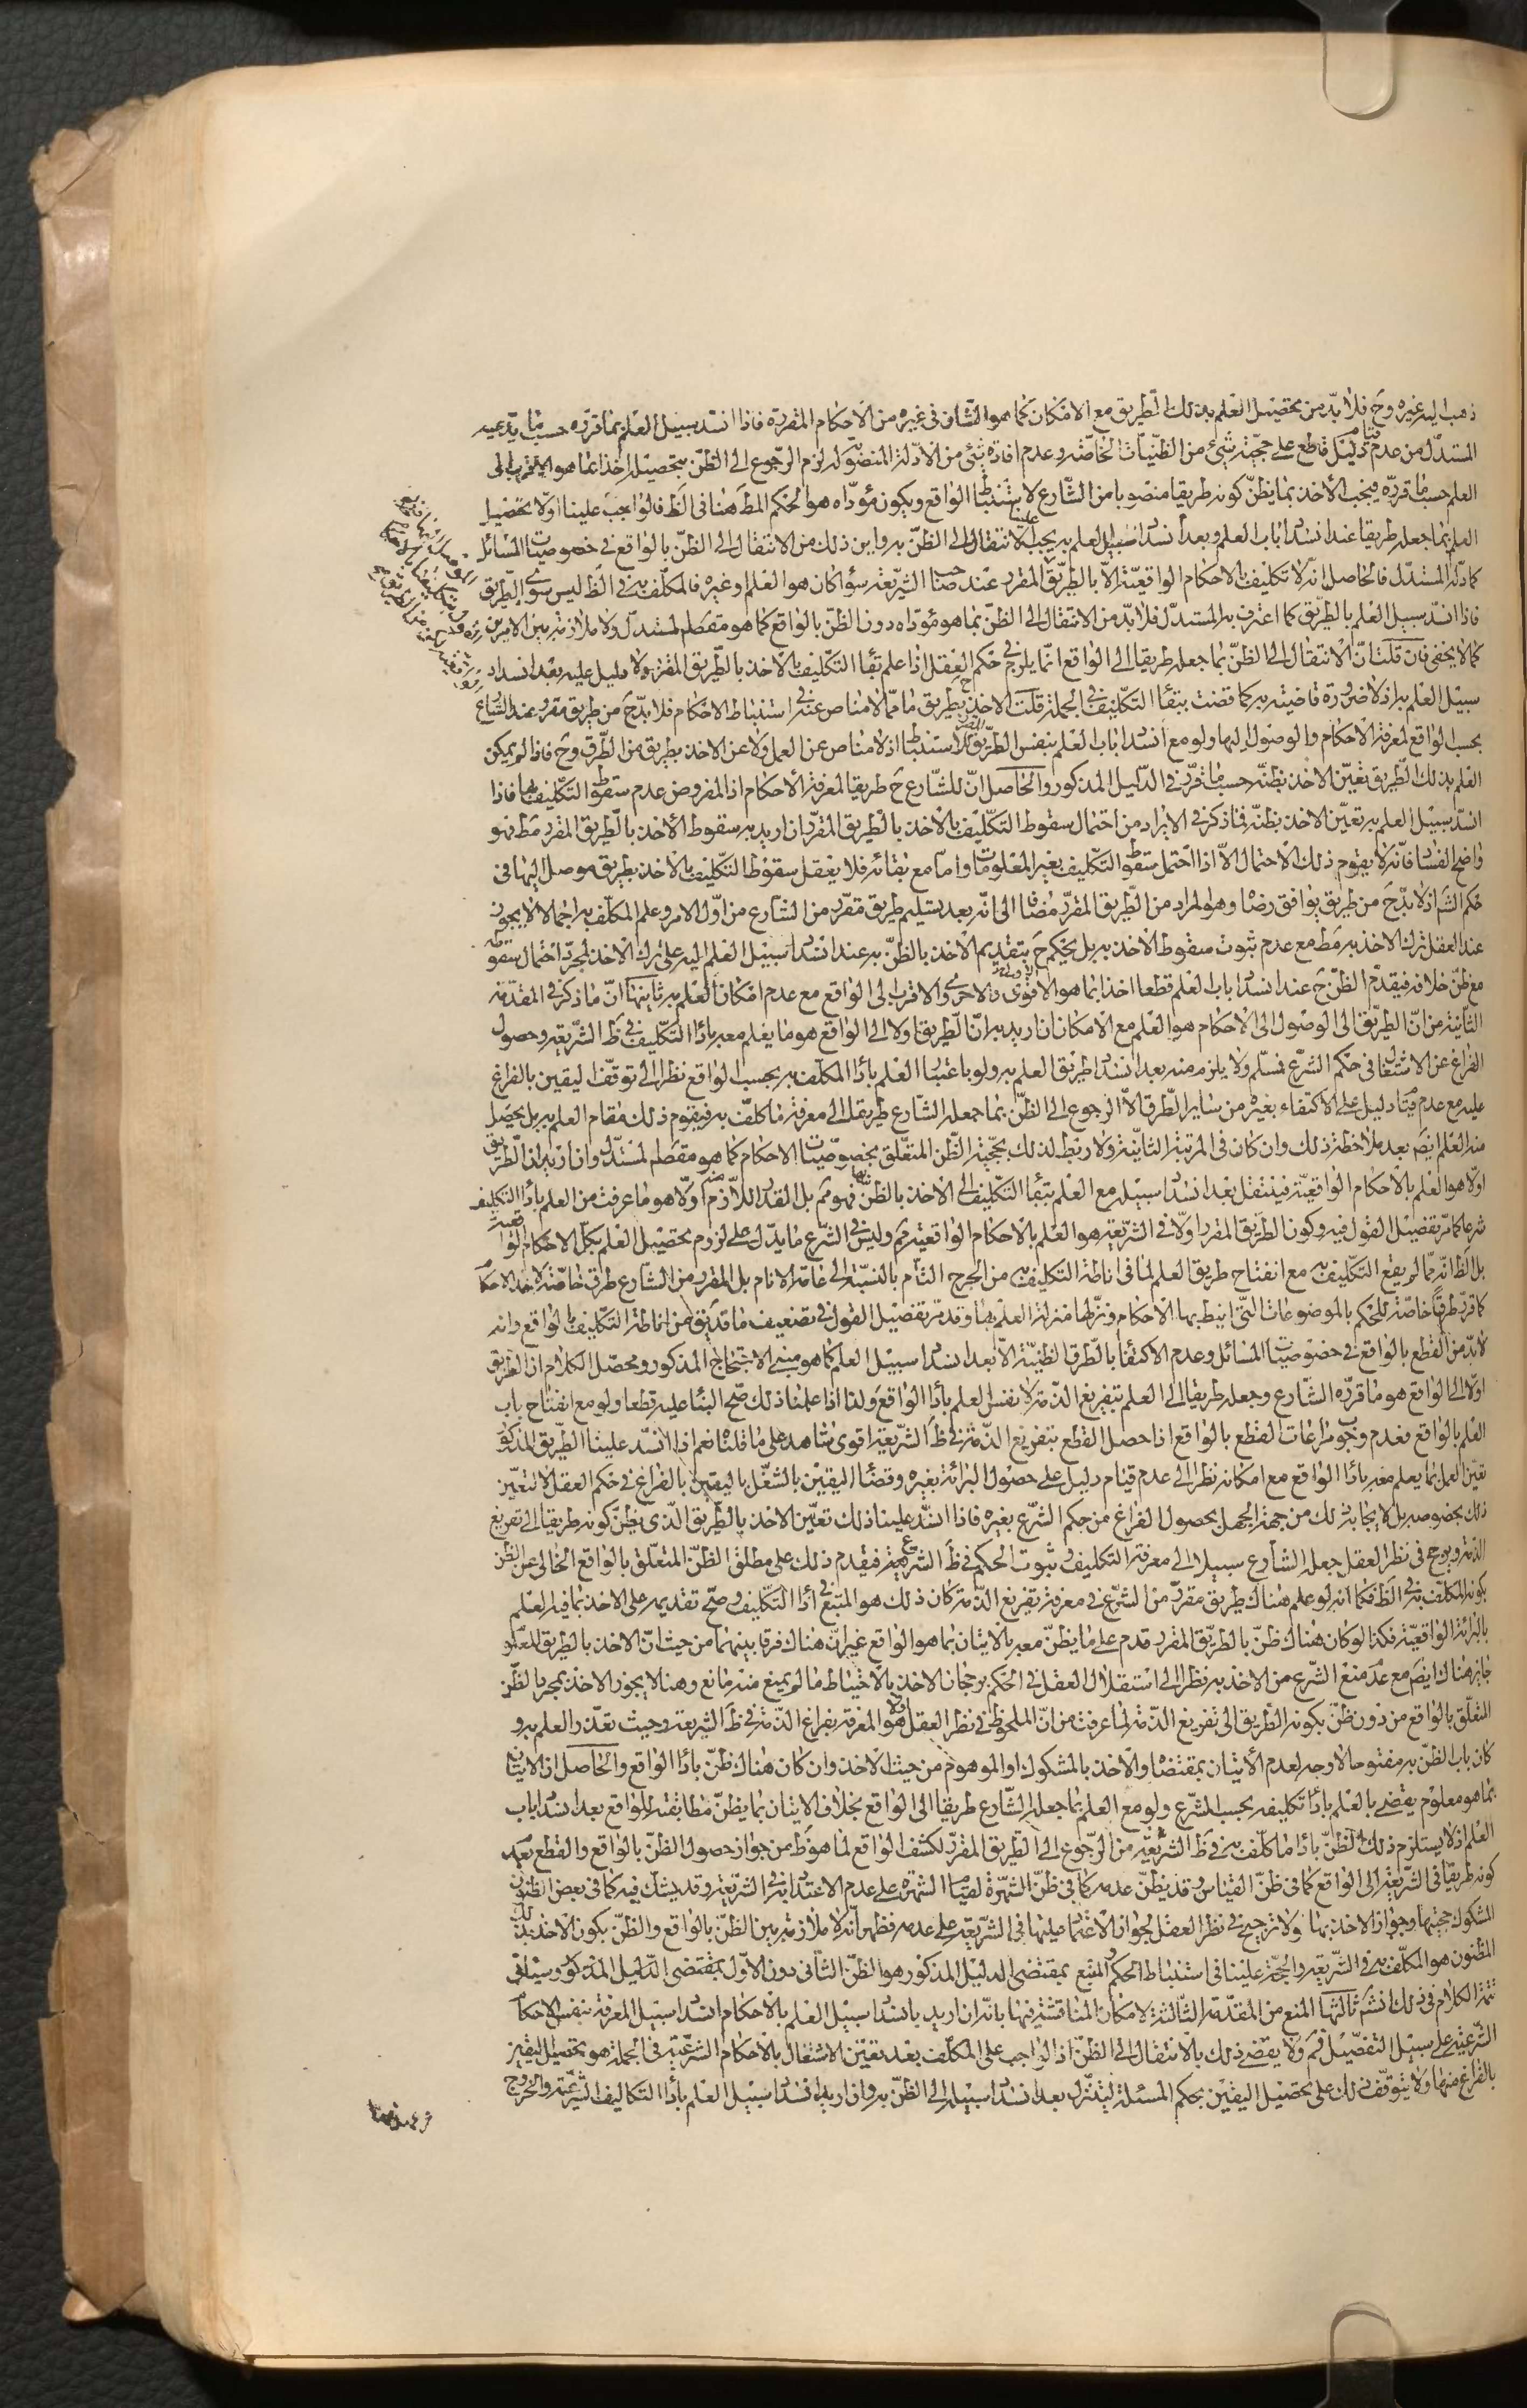 ذهب اليه غيره وح فلا بدّ من تحصيل العلم بذلك الطريق مع الامكان كما هو الشان في غيره من الاحكام المقررة فاذا انسد سبيل العلم بما قرّره حسب ما يدّعيه
المستدلّ من عدم قيام دليل قاطع على حجّية شيء من الظنّيات الخاصّة وعدم افادة شيء من الادلة المنصوبة له لزم الرّجوع الى الظنّ بتحصيله اخذا بما هو الاقرب الى
العلم حسب ما قرّره فيجب الاخذ بما يظنّ كونه طريقا منصوبا من الشّارع لاستنباط الواقع ويكون مؤدّاه هو الحكم المط هنا في الظ فالواجب علينا اولا تحصيل
العلم بما جعله طريقا عند انسداد باب العلم وبعد انسداد سبيل العلم به يجب علينا الانتقال الى الظنّ به واين ذلك من الانتقال الى الظنّ بالواقع في خصوصيات المسائل
كما رامه المستدل فالحاصل انه لا تكليف بالاحكام الواقعيّة الاّ بالطريق المقرر عند صاحب الشّريعة سواء كان هو العلم او غيره فالمكلّف به في الظ ليس سوى الطّريق
فاذا انسد سبيل العلم بالطّريق كما اعترف به المستدلّ فلا بدّ من الانتقال الى الظنّ بما هو مؤدّاه دون الظنّ بالواقع كما هو مقصد المستدل ولا ملازمة بين الامرين
كما لا يخفى فان قلت انّ الانتقال الى الظنّ بما جعله طريقا الى الواقع انّما يلزم في حكم العقل اذا علم بقاء التكليف بالاخذ بالطّريق المقرّر ولا دليل عليه بعد انسداد
سبيل العلم به اذ لا ضرورة قاضية به كما قضت ببقاء التكليف في الجملة قلت الاخذ بطريق ما ممّا لا مناص عنه في استنباط الاحكام فلا بدّ ح من طريق مقرر عند الشّارع
بحسب الواقع لمعرفة الاحكام والوصول اليها ولو مع انسداد باب العلم بنفس الطّريق المقرر للاستنباط اذ لا مناص عن العمل ولا عن الاخذ بطريق من الطّرق وح فاذا لم يمكن
العلم بذلك الطّريق تعيّن الاخذ بظنّه حسب ما قرّر في الدّليل المذكور والحاصل انّ للشّارع ح طريقا لمعرفة الاحكام اذ المفروض عدم سقوط التكليف بها فاذا
انسدّ سبيل العلم به تعيّن الاخذ بظنّه فما ذكر في الايراد من احتمال سقوط التكليف بالاخذ بالطّريق المقرّر ان اريد به سقوط الاخذ بالطّريق المقرر مط فهو
واضح الفساد فانّه لا يقوم ذلك الاحتمال الاّ اذا احتمل سقوط التكليف بغير المعلومات وامّا مع بقائه فلا يعقل سقوط التكليف بالاخذ بطريق موصل اليها في
حكم الشم اذ لا بدّ ح من طريق يوافق رضاه وهو المراد من الطّريق المقرّر مضافا الى انّه بعد تسليم طريق مقرّر من الشّارع من اوّل الامر وعلم المكلّف به اجمالا لا يجوز
عند العقل ترك الاخذ به مط مع عدم ثبوت سقوط الاخذ به بل يحكم ح بتقديم الاخذ بالظنّ به عند انسداد سبيل العلم اليه على ترك الاخذ لمجرّد احتمال سقوطه
مع ظنّ خلافه فيقدّم الظنّ ح عند انسداد باب العلم قطعا اخذا بما هو الاقوى والاحرى والاقرب الى الواقع مع عدم امكان العلم به ثانيها انّ ما ذكر في المقدّمة
الثّانية من انّ الطريق الى الوصول الى الاحكام هو العلم مع الامكان ان اريد به انّ الطّريق اولا الى الواقع هو ما يعلم معه باداء التكليف في ظ الشّريعة وحصول
الفراغ عن الاشتغال في حكم الشرع فمسلّم ولا يلزم منه بعد انسداد طريق العلم به ولو باعتبار العلم باداء المكلّف به بحسب الواقع نظرا الى توقّف اليقين بالفراغ
عليه مع عدم قيام دليل على الاكتفاء بغيره من ساير الطّرق الاّ الرجوع الى الظنّ بما جعله الشّارع طريقا الى معرفة ما كلّف به فيقوم ذلك مقام العلم به بل يحصل
منه العلم ايضم بعد ملاحظة ذلك وان كان في المرتبة الثانية ولا ربط لذلك بحجّية الظّن المتعلّق بخصوصيّات الاحكام كما هو مقصد المستدلّ وان اريد به انّ الطّريق
اولا هو العلم بالاحكام الواقعيّة فينتقل بعد انسداد سبيله مع العلم ببقاء التكليف الى الاخذ بالظنّ بها فهو مم بل القدر اللاّزم منه اولا هو ما عرفت من العلم باداء التكليف
شرعا كما مرّ تفصيل القول فيه وكون الطريق المقرر اوّلا في الشّريعة هو العلم بالاحكام الواقعية مم وليس في الشّرع ما يدلّ على لزوم تحصيل العلم بكلّ الاحكام الواقعية
بل الظ انّه ممّا لم يقع التكليف به مع انفتاح طريق العلم لما في اناطة التكليف به من الحرج التّام بالنّسبة الى عامة الانام بل المقرر من الشّارع طرق خاصّة لاخذ الاحكام
كما قرّر طرقا خاصّة للحكم بالموضوعات الّتي انيط بها الاحكام ونزّلها منزلة العلم بها وقد مرّ تفصيل القول في تضعيف ما قد يتوهم من اناطة التكليف بالواقع وانه
لا بدّ من القطع بالواقع في خصوصيّات المسائل وعدم الاكتفاء بالطّرق الظنّيّة الاّ بعد انسداد سبيل العلم كما هو مبنى الاحتجاج المذكور ومحصّل الكلام انّ الطّريق
اولا الى الواقع هو ما قرّره الشّارع وجعله طريقا الى العلم بتفريغ الذّمة لا نفس العلم باداء الواقع ولذا اذا علمنا ذلك صحّ البناء عليه قطعا ولو مع انفتاح باب
العلم بالواقع فعدم وجوب مراعات القطع بالواقع اذا حصل القطع بتفريغ الذّمة في ظ الشّريعة اقوى شاهد على ما قلناه نعم اذا انسدّ علينا الطّريق المذكور
تعيّن العمل بما يعلم معه باداء الواقع مع امكانه نظرا الى عدم قيام دليل على حصول البراءة بغيره وقضاء اليقين بالشّغل باليقين بالفراغ في حكم العقل لا لتعيّن
ذلك بخصوصه بل لايجابه ذلك من جهة الجهل بحصول الفراغ من حكم الشّرع بغيره فاذا انسدّ علينا ذلك تعيّن الاخذ بالطّريق الّذي يظنّ كونه طريقا الى تفريغ
الذّمة ويرجح في نظر العقل جعل الشّارع سبيلا الى معرفة التكليف وثبوت الحكم في ظ الشّريعة فيقدم ذلك على مطلق الظنّ المتعلّق بالواقع الخالى عن الظن
بكونه المكلّف به في الظ فكما انه لو علم هناك طريق مقرّر من الشّرع في معرفة تفريغ الذّمة كان ذلك هو المتبع في اداء التكليف وصحّ تقديمه على الاخذ بما فيه العلم
بالبراءة الواقعيّة فكذا لو كان هناك ظنّ بالطّريق المقرر قدم على ما يظنّ معه بالاتيان بما هو الواقع غير انّ هناك فرقا بينهما من حيث انّ الاخذ بالطريق المعلوم
جايز هناك ايضم مع عدم منع الشّرع من الاخذ به نظرا الى استقلال العقل في الحكم برجحان الاخذ بالاحتياط ما لم يمنع منه مانع وهنا لا يجوز الاخذ بمجرد الظن
المتعلّق بالواقع من دون ظنّ بكونه الطّريق الى تفريغ الذّمة لما عرفت من انّ الملحوظ في نظر العقل اولا هو المعرفة بفراغ الذّمة في ظ الشريعة وحيث تعذّر العلم به و
كان باب الظنّ به مفتوحا لا وجه لعدم الاتيان بمقتضاه والاخذ بالمشكوك او الموهوم من حيث الاخذ وان كان هناك ظنّ باداء الواقع والحاصل ان الاتيان
بما هو معلوم يقضي بالعلم باداء تكليفه بحسب الشرع ولو مع العلم بما جعله الشّارع طريقا الى الواقع بخلاف الاتيان بما يظنّ مطابقته للواقع بعد انسداد باب
العلم اذ لا يستلزم ذلك الظنّ باداء ما كلّف به في ظ الشّريعة من الرّجوع الى الطّريق المقرّر لكشف الواقع لما هو ظ من جواز حصول الظنّ بالواقع والقطع بعدم
كونه طريقا في الشّريعة الى الواقع كما في ظنّ القياس وقد يظنّ عدمه كما في ظنّ الشّهرة لقيام الشهرة على عدم الاعتداد به في الشّريعة وقد يشك فيه كما في بعض الظنون
المشكوك حجيّتها وجواز الاخذ بها ولا ترجيح في نظر العقل لجواز الاعتماد عليها في الشّريعة على عدمه فظهر انّه لا ملازمة بين الظنّ بالواقع والظنّ بكون الاخذ بذلك
المظنون هو المكلّف به في الشّريعة والحجّة علينا في استنباط الحكم والمتبع بمقتضى الدليل المذكور هو الظنّ الثّاني دون الاوّل بمقتضى الدّليل المذكور وسياتي
تتمة الكلام في ذلك انشم ثالثها المنع من المقدّمة الثّالثة لامكان المناقشة فيها بانّه ان اريد بانسداد سبيل العلم بالاحكام انسداد سبيل المعرفة بنفس الاحكام
الشّرعيّة على سبيل التفصيل فمم ولا يقضي ذلك بالانتقال الى الظنّ اذ الواجب على المكلّف بعد تعيّن الاشتغال بالاحكام الشّرعيّة في الجملة هو تحصيل اليقين
بالفراغ منها ولا يتوقّف ذلك على تحصيل اليقين بحكم المسئلة ليتنزل بعد انسداد سبيله الى الظنّ به وان اريد انسداد سبيل العلم باداء التكاليف الشّرعيّة والخروج